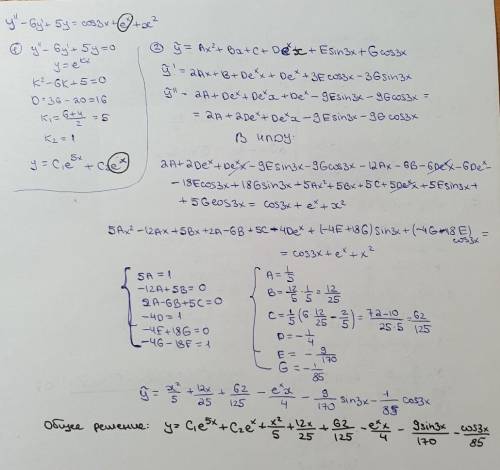 y'' - 6y' + 5y = cos3x + eˣ + x²
① y'' - 6y' + 5y = 0
y = e^{kx}
k² - 6k + 5 = 0
D = 36 - 20 = 16
k₁ = (6+4)/2 = 5
k₂ = 1
y = C₁e^{5x} + C₂eˣ
② ỹ = Ax² + Bx + C + Deˣx + Esin3x + Gcos3x
ỹ' = 2Ax + B + Deˣx + Deˣ + 3Ecos3x - 3Gsin3x
ỹ'' = 2A + Deˣ + Deˣx + Deˣ - 9Esin3x - 9Gcos3x =
= 2A + 2Deˣ + Deˣx - 9Esin3x - 9Gcos3x
В НЛДУ:
2A + 2Deˣ + Deˣx - 9Esin3x - 9Gcos3x - 12Ax - 6B - 6Deˣx - 6Deˣ -
- 18Ecos3x + 18Gsin3x + 5Ax² + 5Bx + 5C + 5Deˣx + 5Esin3x +
+ 5Gcos3x = cos3x + eˣ + x²
5Ax² - 12Ax + 5Bx + 2A - 6B + 5C - 4Deˣ + (-4E + 18G)sin3x + (-4G - 18E)cos3x =
= cos3x + eˣ + x²
5A = 1
-12A + 5B = 0
2A - 6B + 5C = 0
-4D = 1
-4E + 18G = 0
-4G - 18E = 1
A = 1/5
B = 12/5 · 1/5 = 12/25
C = 1/5 (6 · 12/25 - 2/5) = (72-10)/(25·5) = 62/125
D = -1/4
E = -9/170
G = -1/85
ỹ = x²/5 + 12x/25 + 62/125 - eˣx/4 - 9/170 sin3x - 1/85 cos3x
Общее решение: y = C₁e^{5x} + C₂eˣ + x²/5 + 12x/25 + 62/125 - eˣx/4 - 9sin3x/170 - cos3x/85